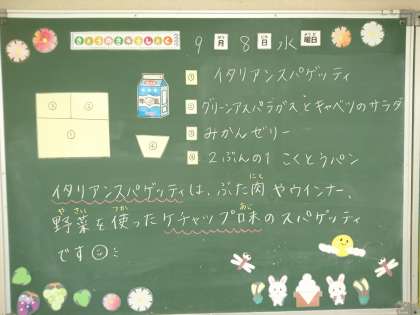 きょうのきゅうしょく 9月8日水曜日
① イタリアンスパゲッティ
② グリーンアスパラガスとキャベツのサラダ
③ みかんゼリー
④ 2ぶんの1 こくとうパン
③ ②
①
④
イタリアンスパゲッティは、ぶた肉やウインナー、
野菜を使ったケチャップ味のスパゲティ
です